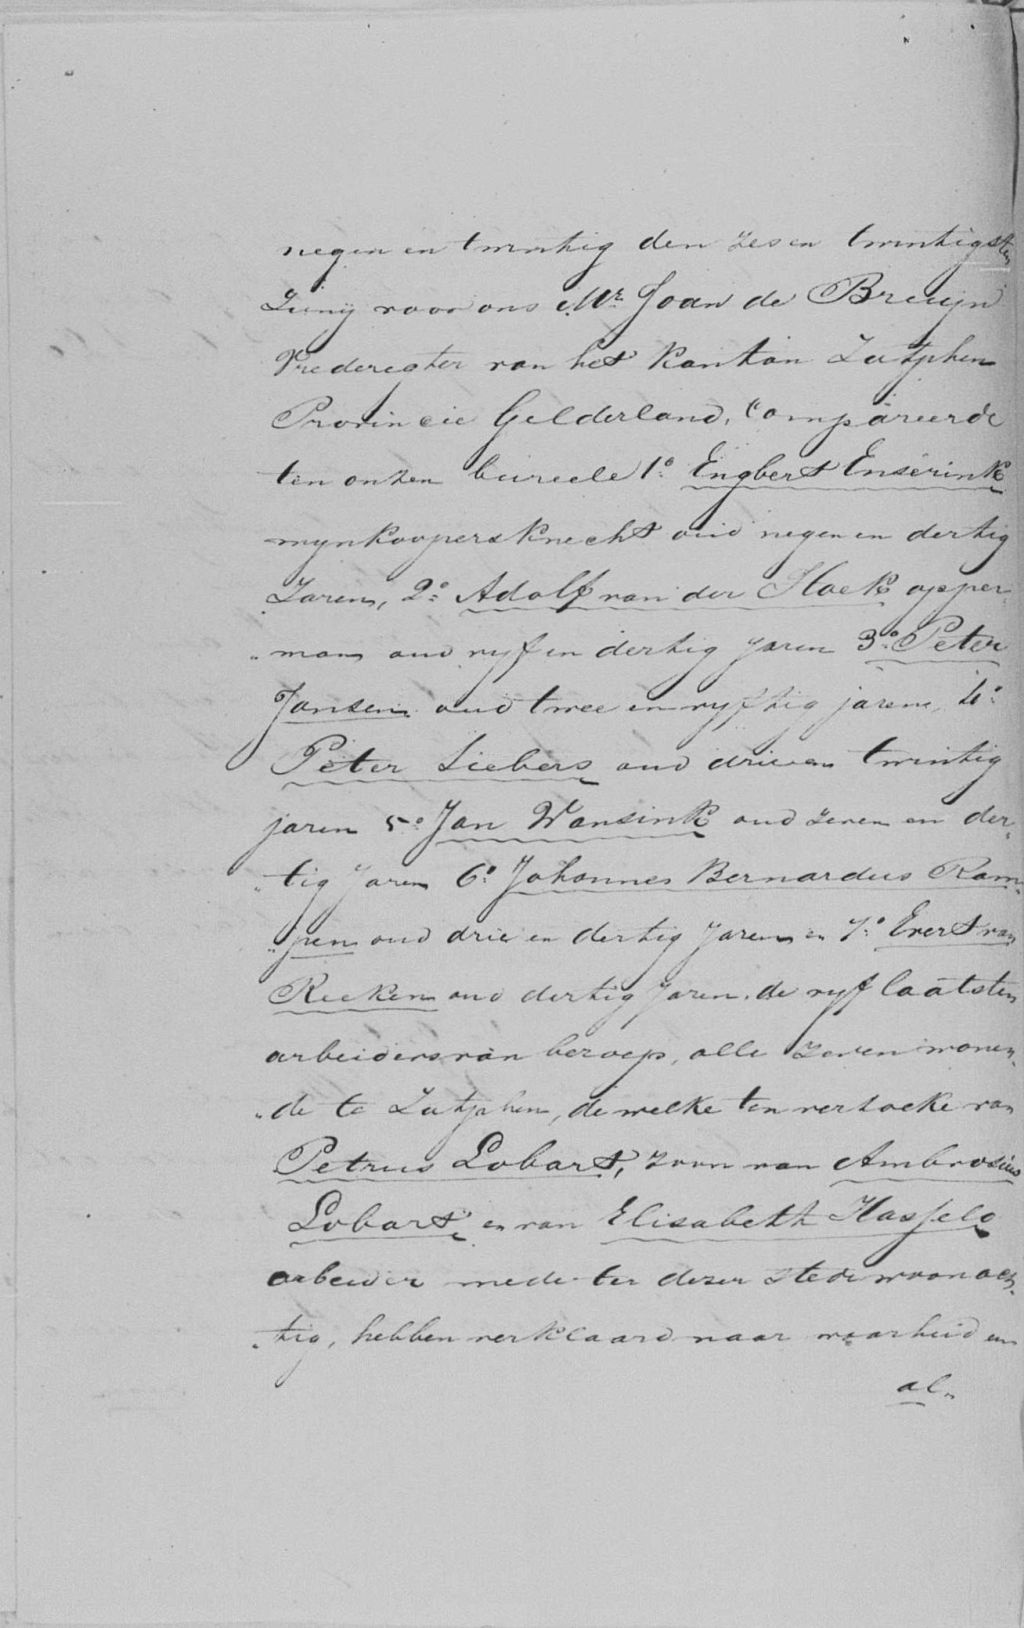 negen en twintig den zes en twintigsten
Juny voor ons Mr. Joan de Bruyn
Vrederegter van het Kanton Zutphen
Provincie Gelderland, Compareerde
ten onzen bureele 1o. Engbert Enserink
wynkoopersknecht oud negen en dertig
Jaren, 2o. Adolf van der Hoek opper„
„man oud vyf en dertig Jaren 3o. Peter
Jansen oud twee en vyftig jaren, 4o.
Peter Liebers oud drie en twintig
jaren 5o. Jan Wansink oud zeven en der„
„tig Jaren 6o. Johannes Bernardus Ram„
„pen oud drie en dertig Jaren en 7o. Evert van
Reeken oud dertig Jaren, de vyf laatsten
arbeiders van beroep, alle zeven wonen„
„de te Zutphen, dewelke ten verzoeke van
Petrus Lobart, zoon van Ambrosius
Lobart en van Elisabeth Hasselo
arbeider mede ter dezer stede woonach„
„tig, hebben verklaard naar waarheid en
al„